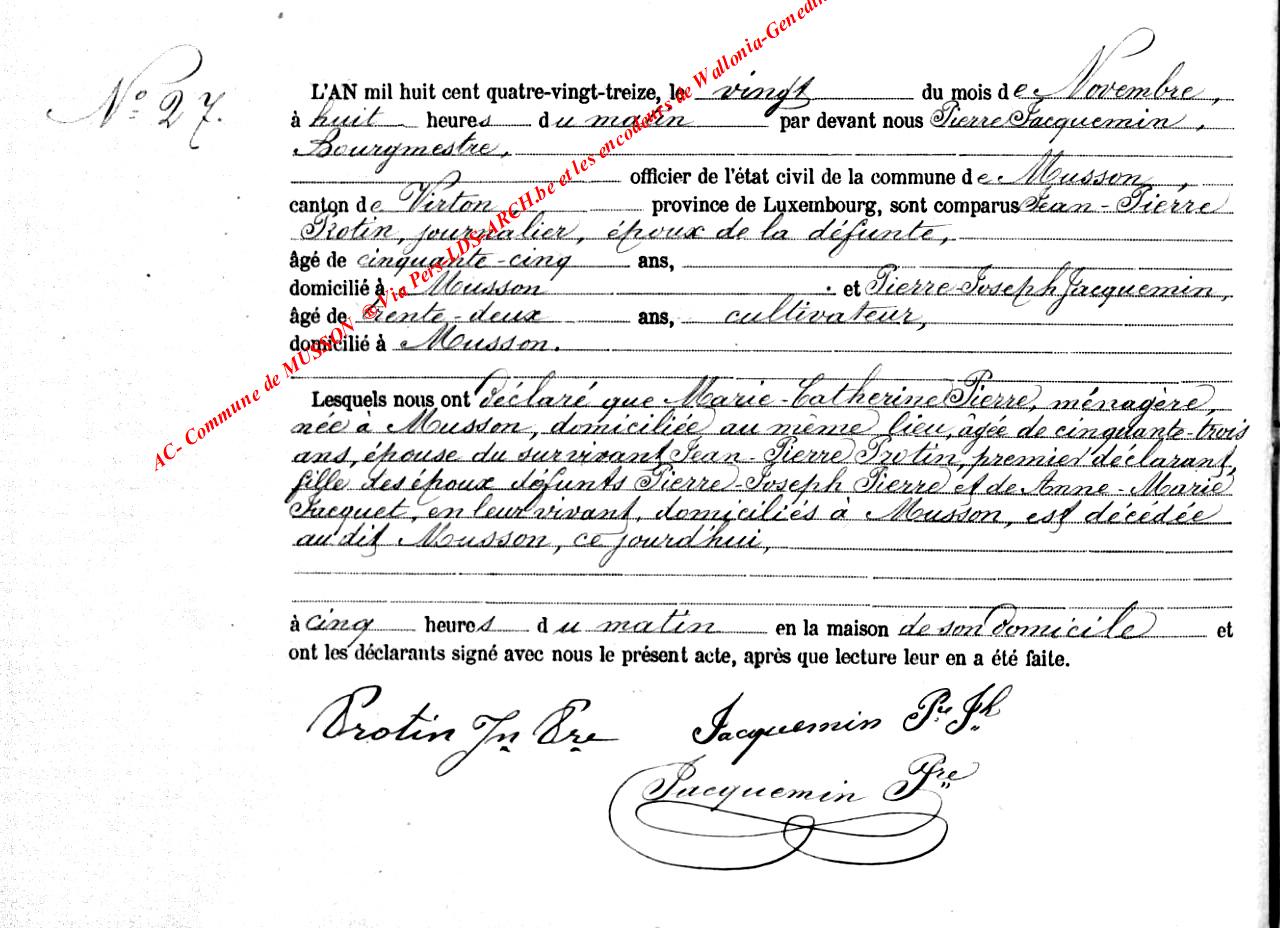 N° 27.
L'AN mil huit cent quatre-vingt-treize, le vingt du mois de Novembre,
à huit heures du matin par devant nous Pierre Jacquemin,
Bourgmestre,
officier de l'état civil de la commune de Musson,
canton de Virton, province de Luxembourg, sont comparus Jean-Pierre
Protin, journalier, époux de la défunte,
âgé de cinquante-cinq ans,
domicilié à Musson et Pierre-Joseph Jacquemin,
âgé de trente-deux ans, cultivateur,
domicilié à Musson.
Lesquels nous ont déclaré que Marie-Catherine Pierre, ménagère,
née à Musson, domiciliée au même lieu, âgée de cinquante-trois
ans, épouse du survivant Jean-Pierre Protin, premier déclarant,
fille des époux défunts Pierre-Joseph Pierre et de Anne-Marie
Jacquet, en leur vivant, domiciliés à Musson, est décédée
au dit Musson, ce jourd'hui,
à cinq heures du matin en la maison de son domicile et
ont les déclarants signé avec nous le présent acte, après que lecture leur en a été faite.
Protin Jn Pre Jacquemin Pre Jh
Jacquemin Pre
AC- Commune de MUSSON ® Via Pers-LDS-ARCH.be et les encodeurs de Wallonia-Genedi